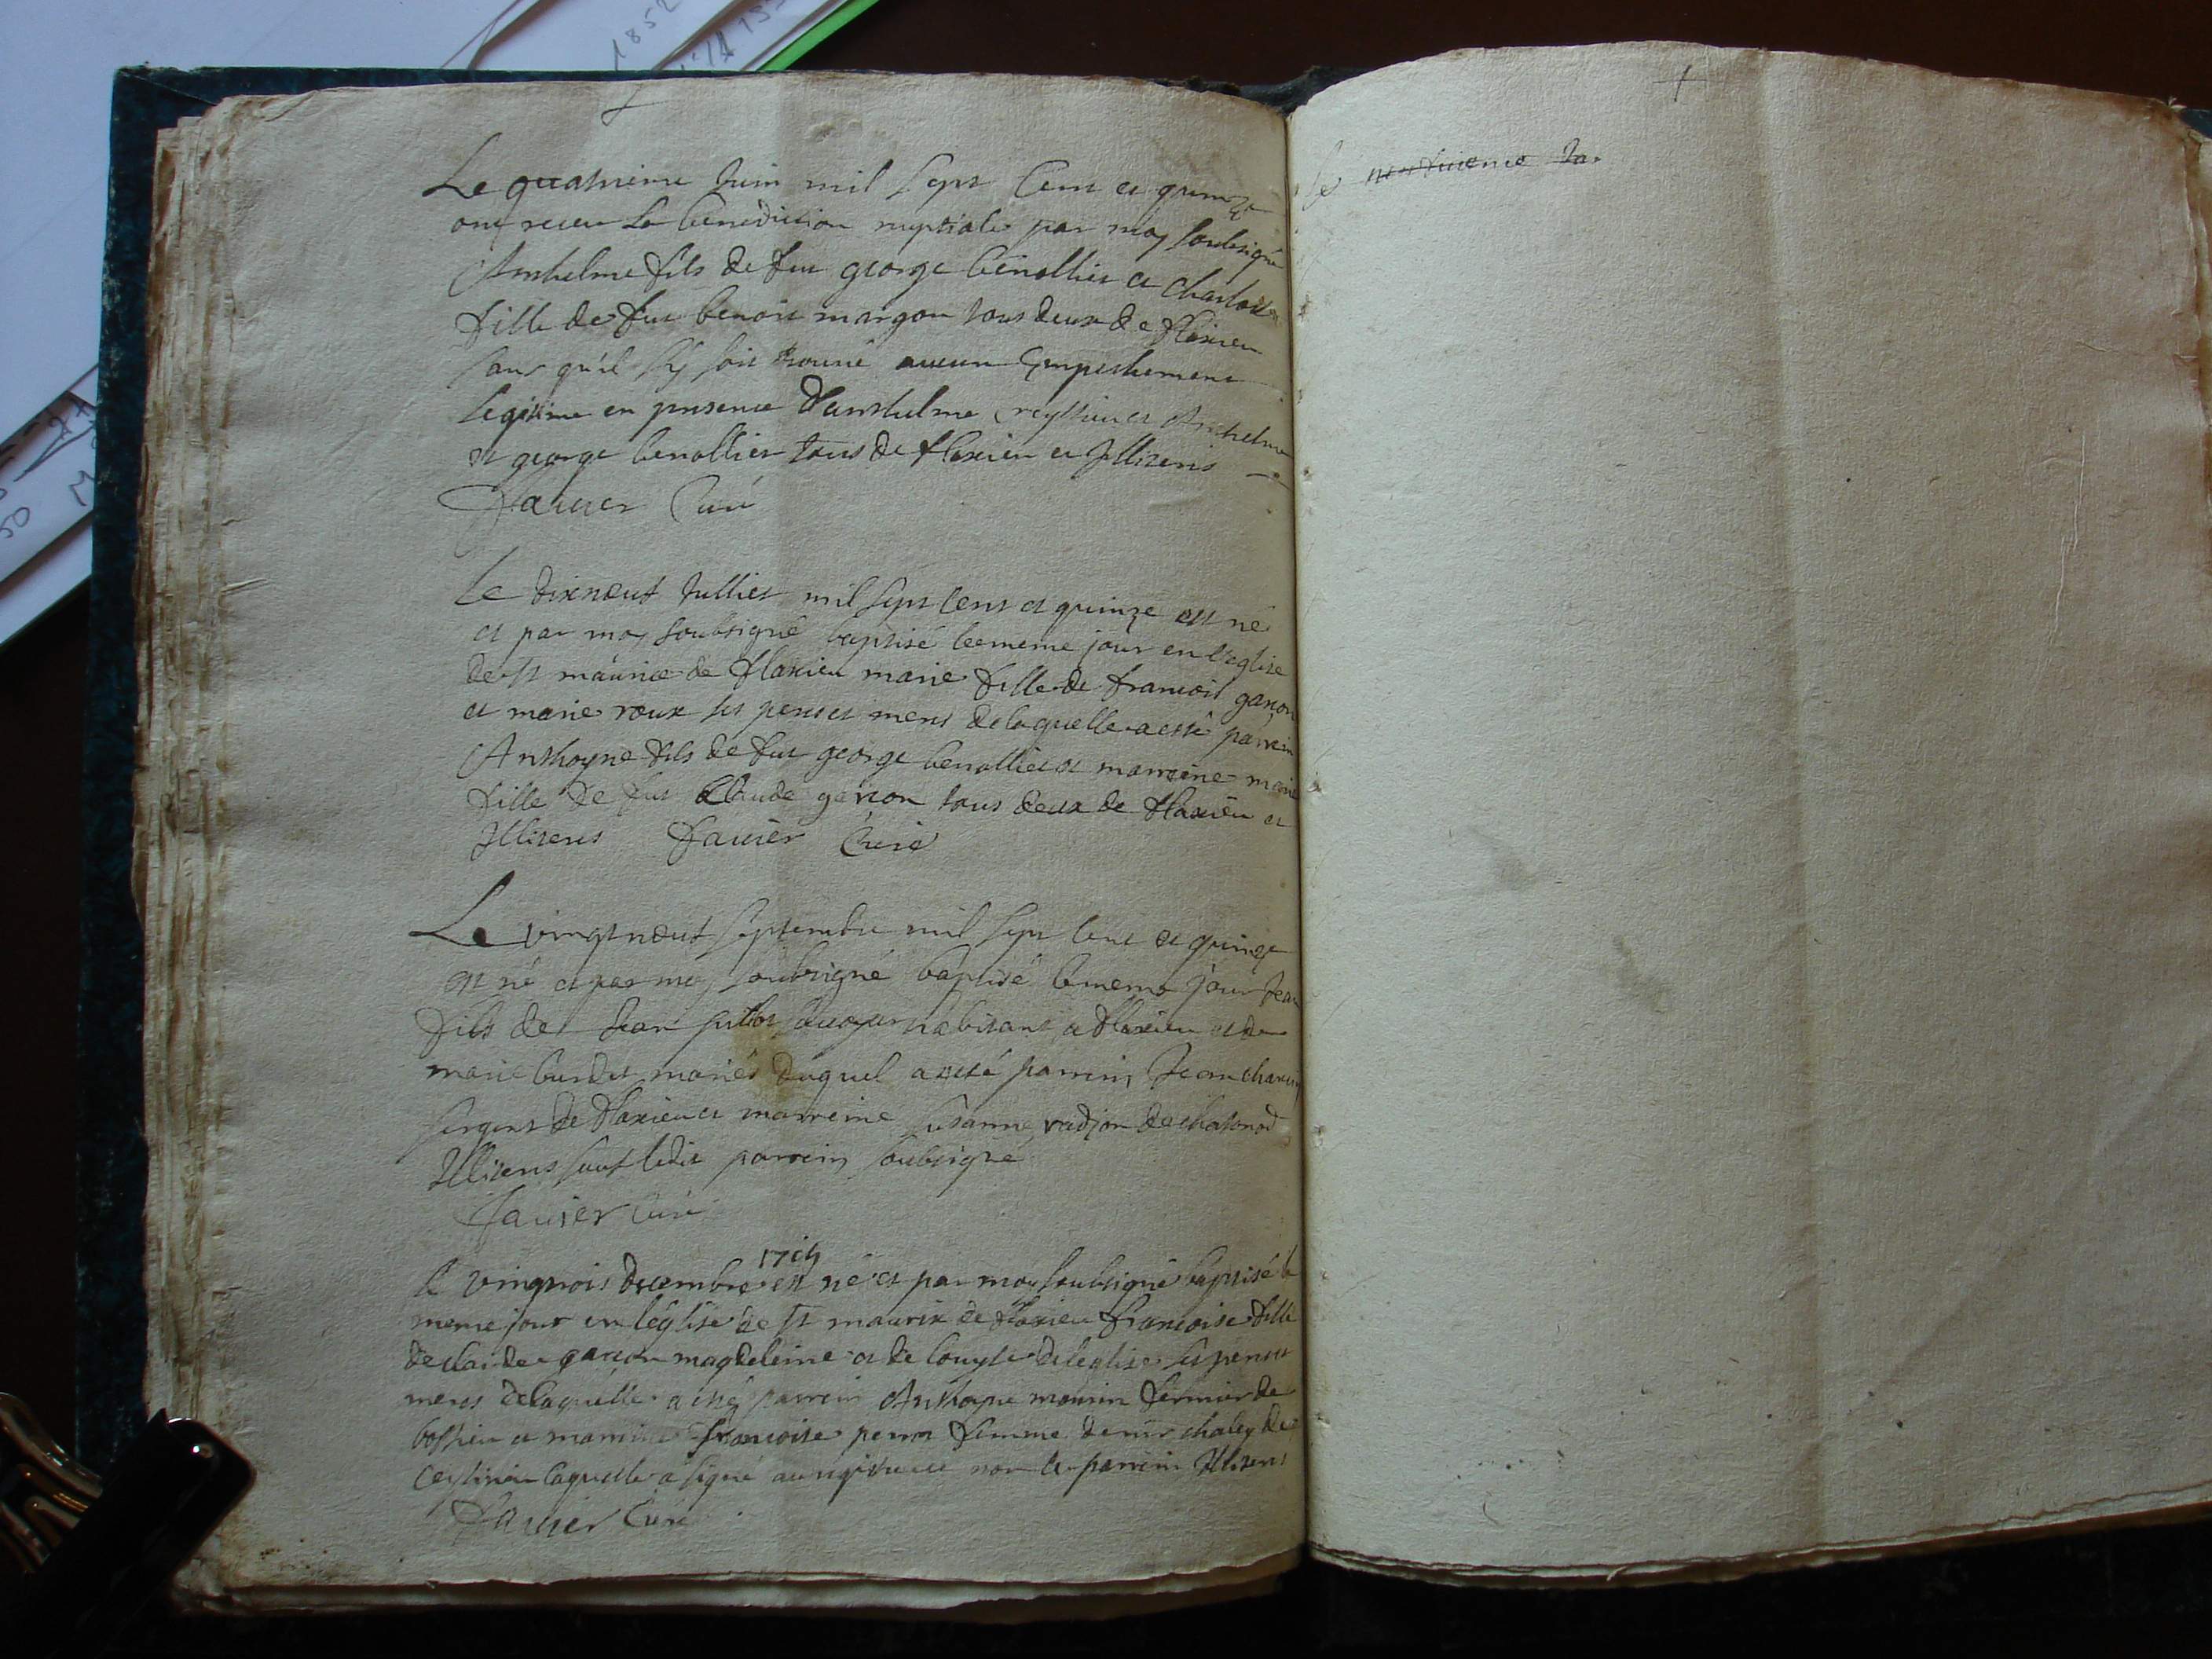 1852
50
Le quatrieme Juin mil sept Cent et quinze
ont receu la benediction nuptiale par moy soubsigné
Anthelme fils de feu george benollier et charlotte
fille de feu benoit margon tous deux de flaxieu
sans qu'il s'y soit trouvé aucun Empeschement
legitime en presence d'anthelme et Anthelme
et george benollier tous de flaxieu et Illiterés
favier Curé
Le dixneuf Julliet mil sept cent et quinze est né
et par moy soubsigné baptisé le meme jour en l'eglise
de st maurice de flaxieu marie fille de francois garion
et marie roux ses peres et meres de laquelle a esté parrein
Anthoyne fils de feu george benollier et marreine marie
fille de feu Claude garion tous deux de flaxieu et
Illiterés favier Curé
Le vingt neuf septembre mil sept cent et quinze
est né et par moy soubsigné baptisé le meme jour Jean
fils de Jean habitant a flaxieu et de
marie burdet mariés duquel a esté parrein Jean charcin
sergent de flaxieu et marreine susanne radjon de chatonod
Illiterés sauf ledit parrein soubsigné
favier Curé
1715
le vingtrois decembre est né et par moy soubsigné baptisé le
meme jour en l'église de st maurix de flaxieu francoise fille
de claude garion magdeleine et de louyse de leglise ses peres et
meres de laquelle a esté parrein Anthoyne mounin fermier de
bossieu et marreine francoise perrot femme de mr chaley de
ceysirieu laquelle a signé au registre et non le parrein Illiteré
favier Curé
le neufvieme Ja.